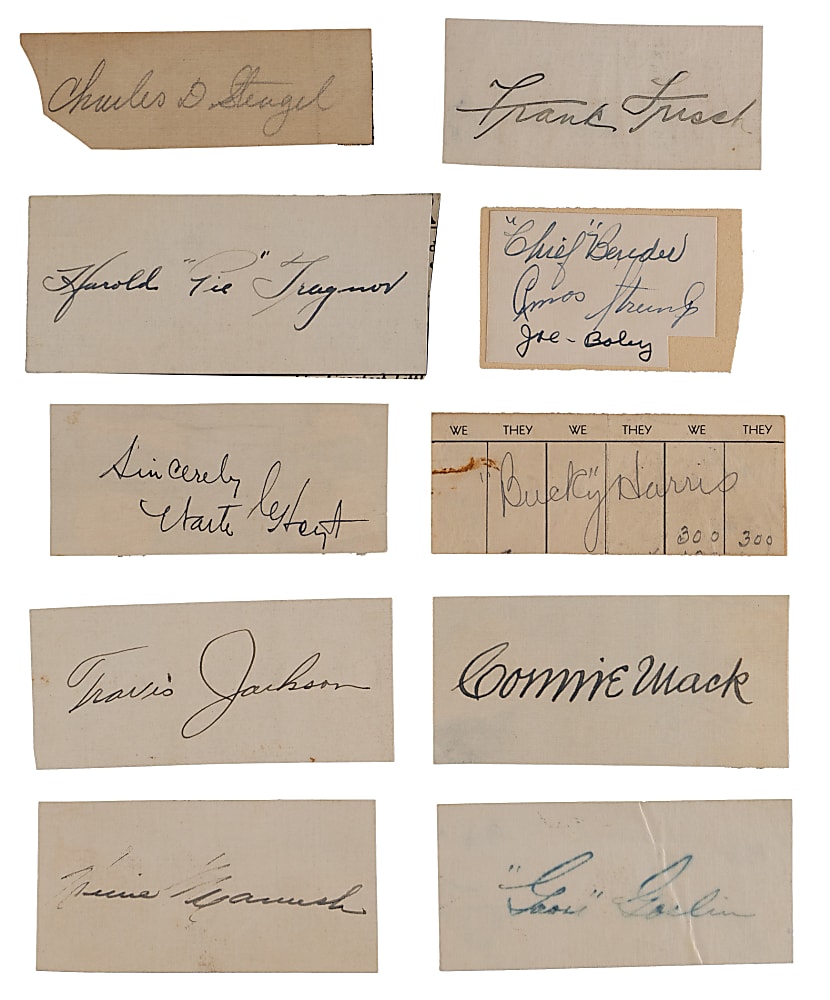 Charles D. Stengel
Frank Frisch
Harold "Pie" Traynor
"Chief" Bender
Amos Strunk
Joe - Boley
Sincerely
Waite C Hoyt
WE THEY WE THEY WE THEY
"Bucky" Harris
300 300
Travis Jackson
Connie Mack
Heinie Manush
"Goose" Goslin